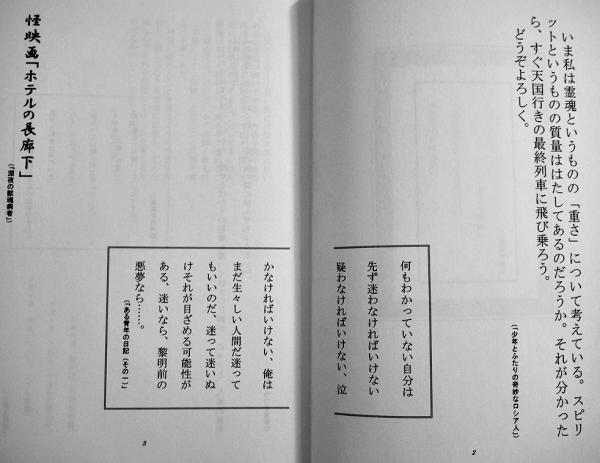 いま私は霊魂というものの「重さ」について考えている。スピリ
ットというものの質量ははたしてあるのだろうか。それが分かった
ら、すぐ天国行きの最終列車に飛び乗ろう。
どうぞよろしく。
(「少年とふたりの奇妙なロシア人」)
何もわかっていない自分は
先ず迷わなければいけない
疑わなければいけない、泣
2
かなければいけない、俺は
まだ生々しい人間だ迷って
もいいのだ、迷って迷いぬ
けそれが目ざめる可能性が
ある、迷いなら、黎明前の
悪夢なら……。
(「ある青年の日記(その一)」)
怪映画「ホテルの長廊下」
(「深夜の獣魂病者」)
3